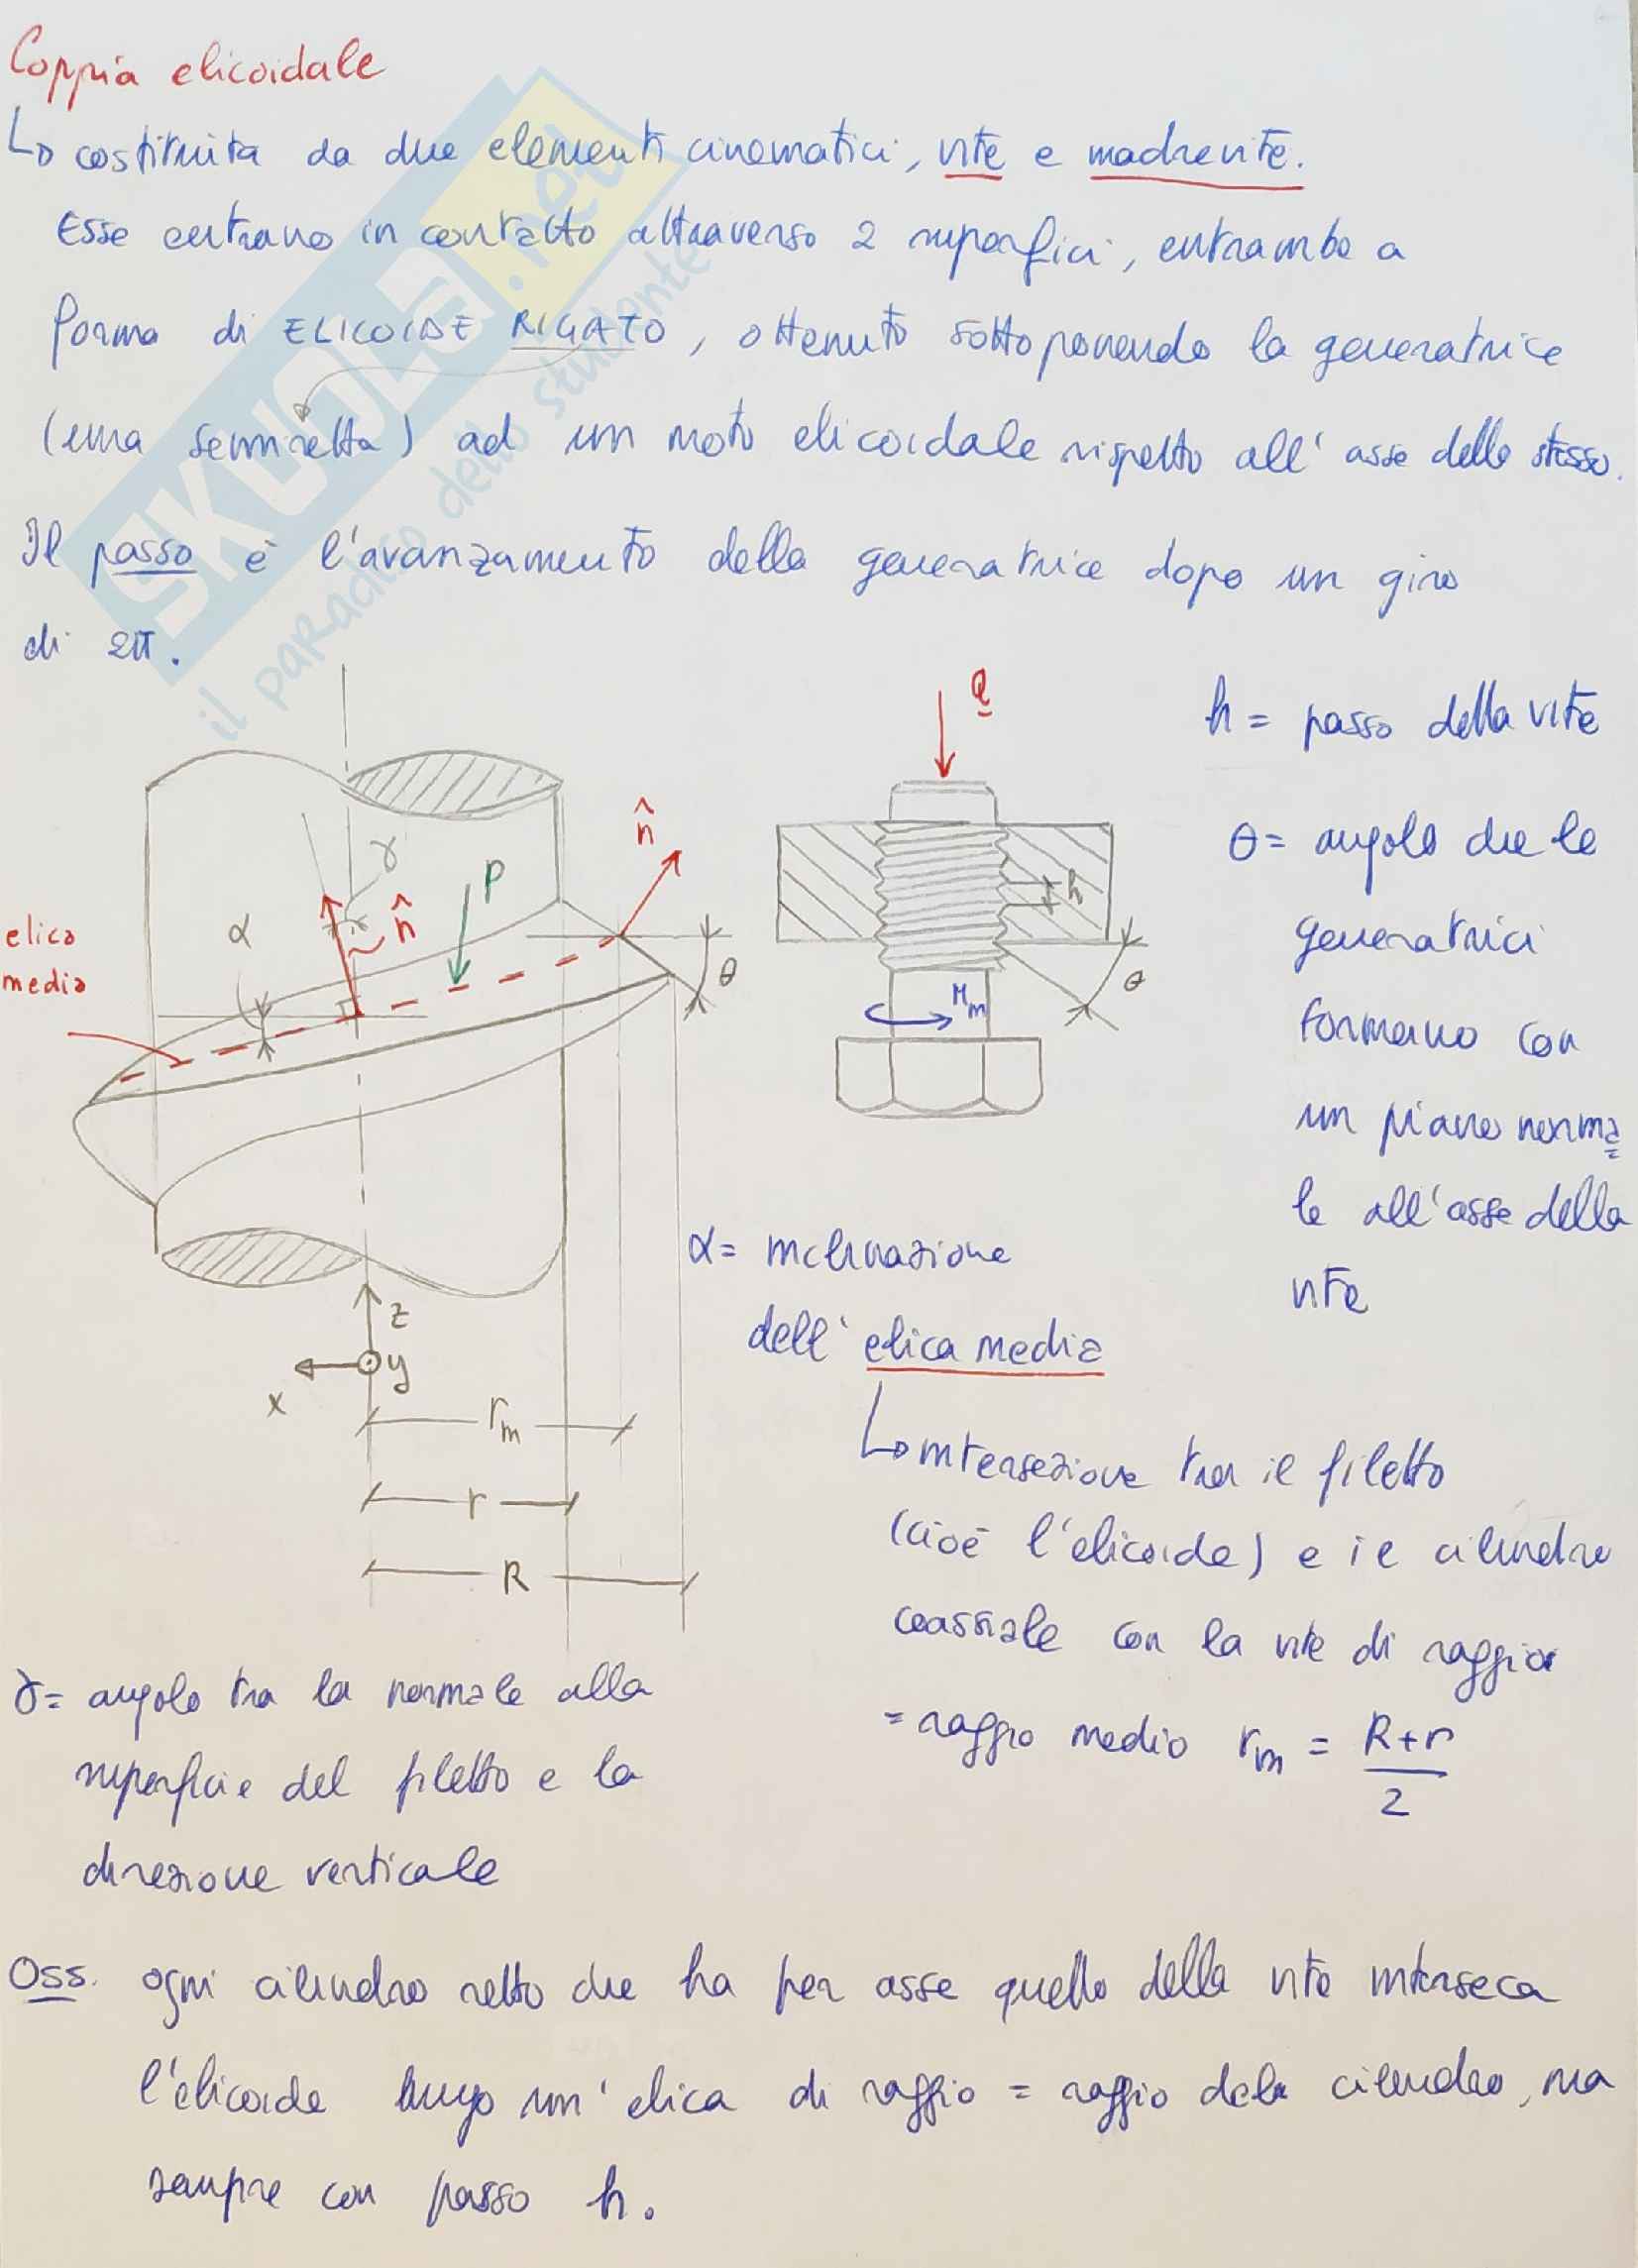 Coppia elicoidale
↳ costituita da due elementi cinematici, vite e madrevite.
Esse entrano in contatto attraverso 2 superfici, entrambe a
forma di ELICOIDE RIGATO, ottenuto sottoponendo la generatrice
(una semiretta) ad un moto elicoidale rispetto all'asse dello stesso.
Il passo è l'avanzamento della generatrice dopo un giro
di 2π.
SKUOLA.net
il paradiso dello studente
Q
h = passo della vite
θ = angolo che le
generatrici
formano con
un piano norma=
le all'asse della
vite
n̂
γ
P
α
n̂
elica
media
θ
h
θ
Mm
α = inclinazione
dell'elica media
↳ intersezione tra il filetto
(cioè l'elicoide) e il cilindro
coassiale con la vite di raggio
= raggio medio rm = R+r
2
z
y
x
rm
r
R
γ = angolo tra la normale alla
superficie del filetto e la
direzione verticale
Oss. ogni cilindro retto che ha per asse quello della vite interseca
l'elicoide lungo un'elica di raggio = raggio del cilindro, ma
sempre con passo h.